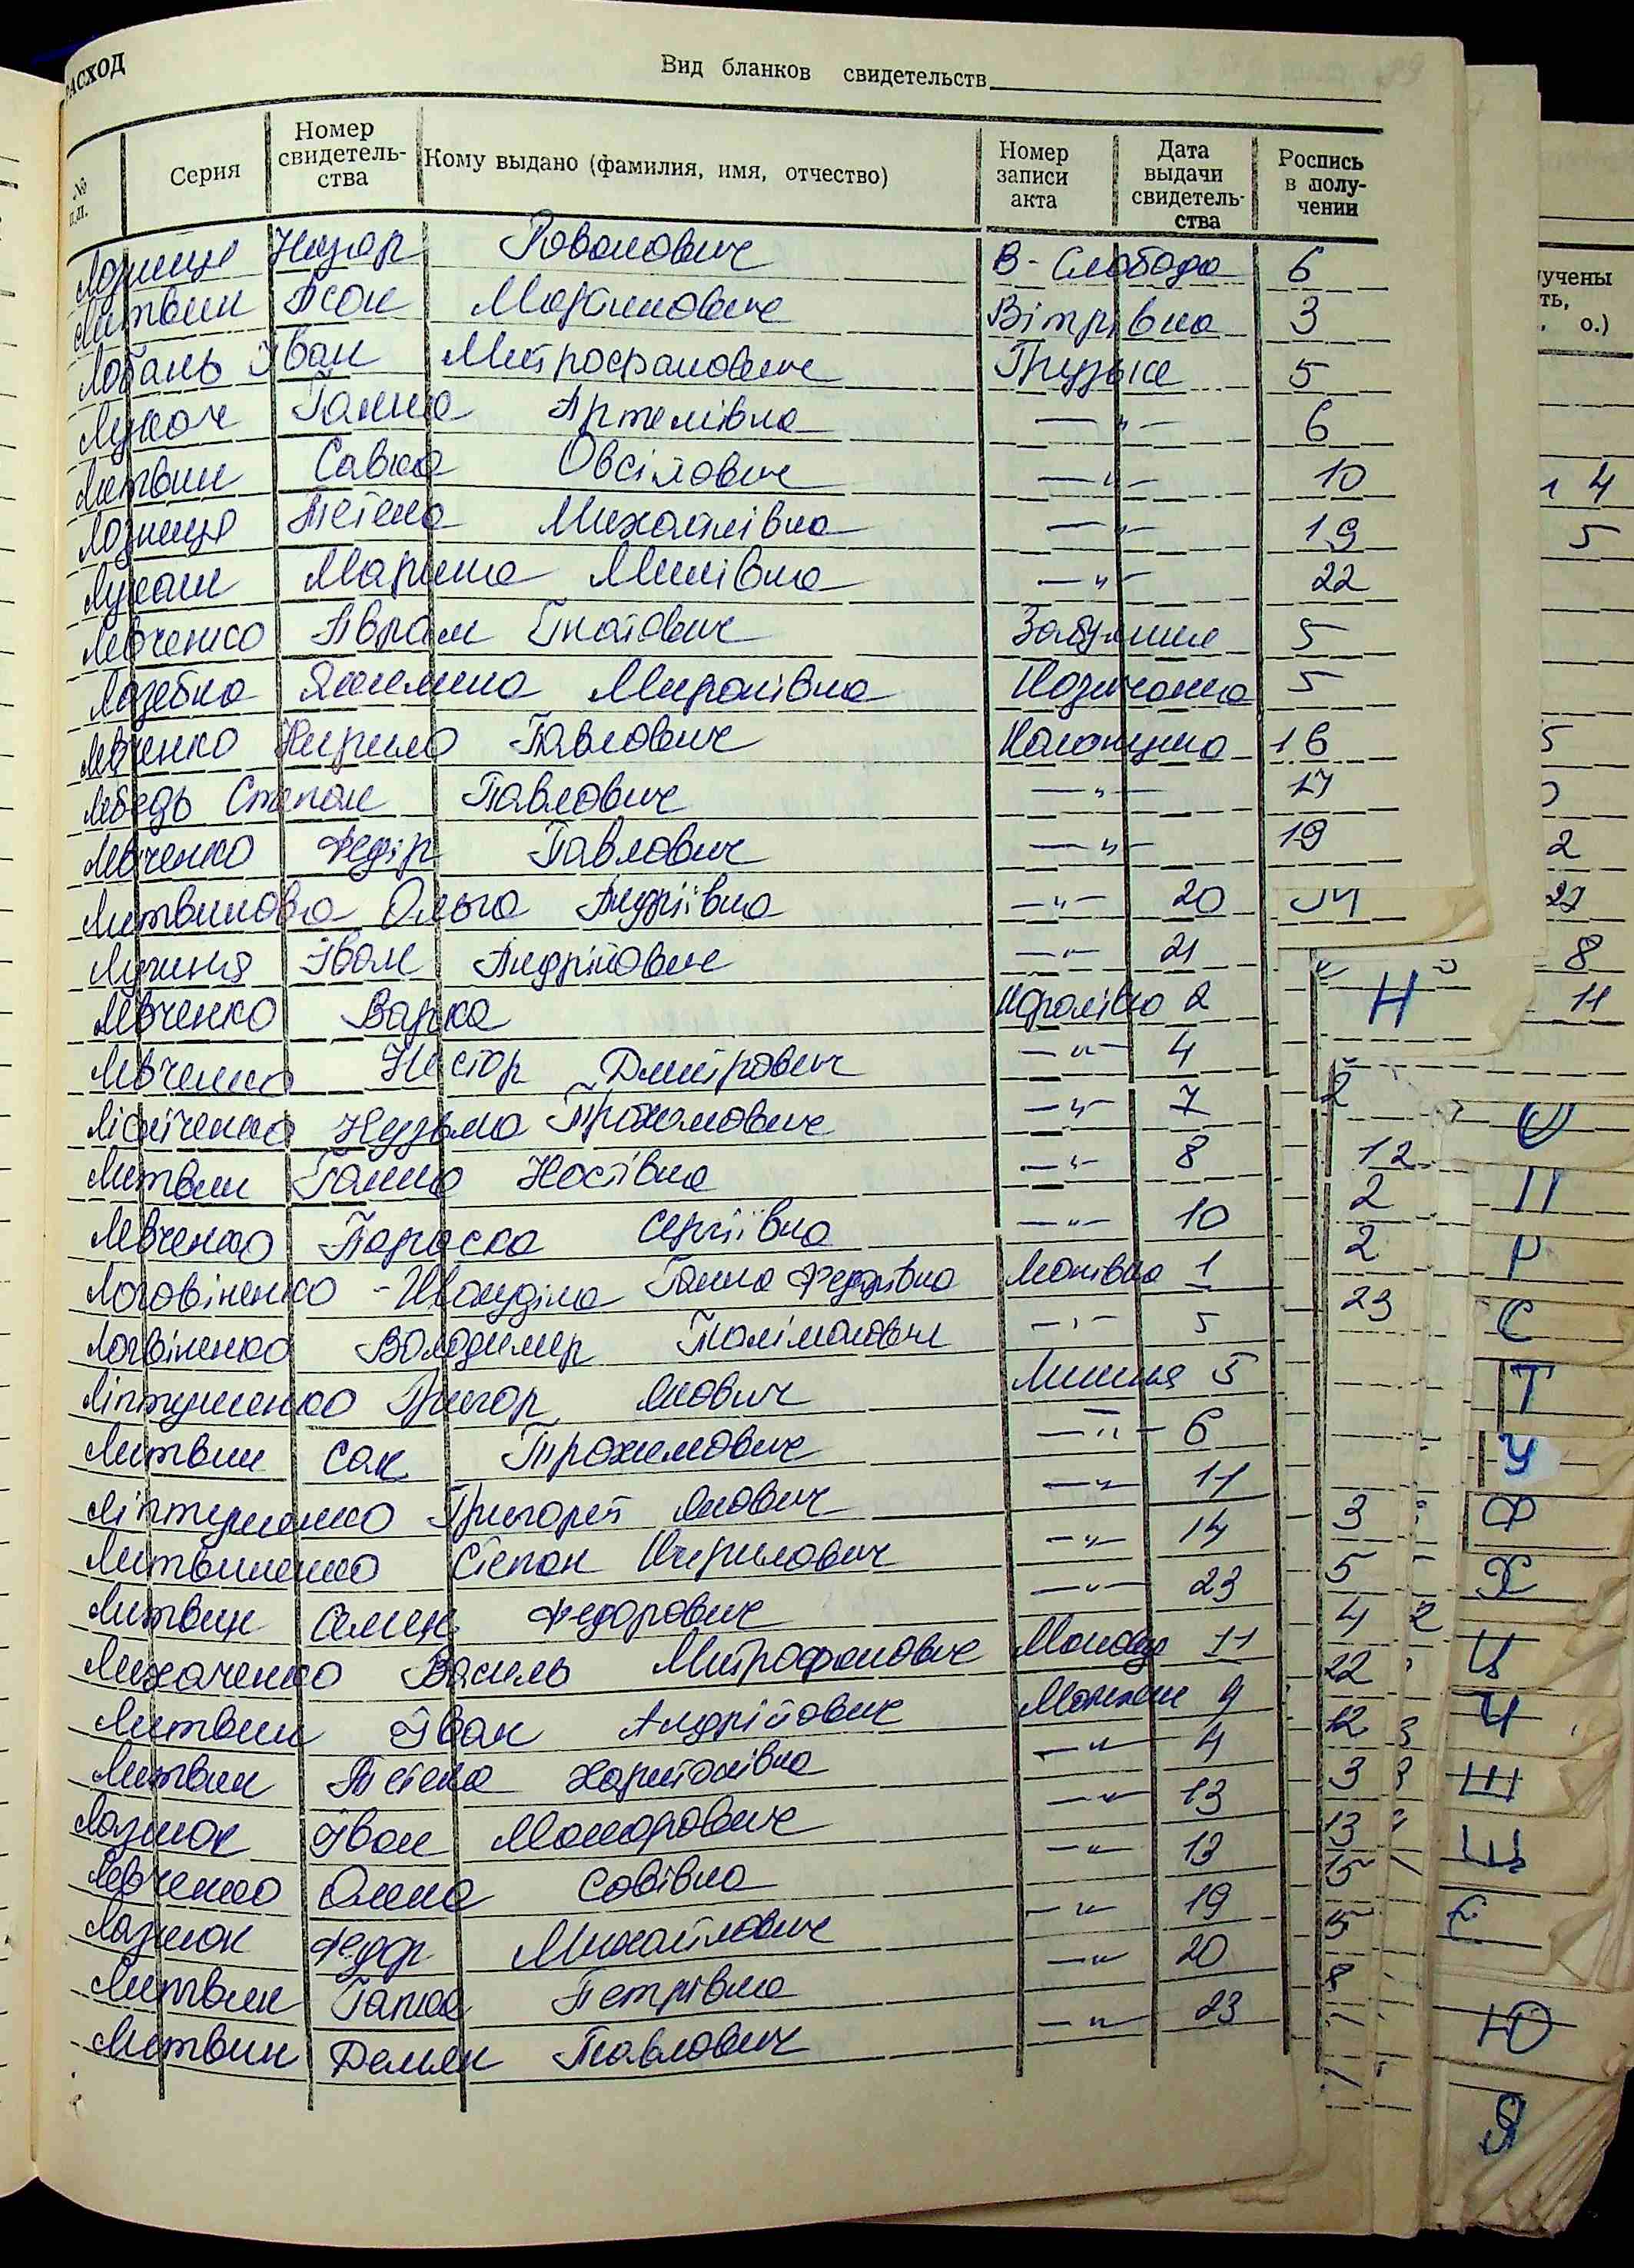 РАСХОД
Вид бланков свидетельств
№ п.п. Серия Номер свидетельства Кому выдано (фамилия, имя, отчество) Номер записи акта Дата выдачи свидетельства Роспись в получении
Лозниця Назар В-Слобода 6
Литвин Мартинович Вітрівка 3
Лобань Іван Митрофанович Грузьке 5
Лукач Ганна Артемівна —"— 6
Литвин Савка Овсійович —"— 10
Лозниця Тетяна Михайлівна —"— 19
Лукаш Марина Минівна —"— 22
Левченко Аврам Гнатович 5
Лозебна Якилина Миронівна 5
Левченко Кирило Павлович 16
Лебедь Степан Павлович —"— 17
Левченко Федір Павлович —"— 19
Литвинова Ольга Андріївна —"— 20
Іван Андрійович —"— 21
Левченко Варка Королівка 2
Левченко Нестор Дмитрович —"— 4
Кузьма Трохимович —"— 7
Литвин Ганна Костівна —"— 8
Левченко Параска Сергіївна —"— 10
Логовіненко - Ганна Федорівна 1
Логвіненко Володимир —"— 5
Ліптушенко Григор Якович 5
Литвин Сак Трохимович —"— 6
Ліптушенко Григорій Якович —"— 11
Литвиненко Степан Кирилович —"— 14
Литвин Семен Федорович —"— 23
Лихаченко Василь Митрофанович 11
Литвин Іван Андрійович 9
Литвин Тетяна Харитонівна —"— 4
Лазнюк Іван Макарович —"— 13
Левченко Олена Савівна —"— 13
Лазнюк Федор Михайлович —"— 19
Литвин Гапка Петрівна —"— 20
Литвин Демян Павлович —"— 23
М
Н
О
П
Р
С
Т
У
Ф
Х
Ц
Ч
Ш
Щ
Є
Ю
Я